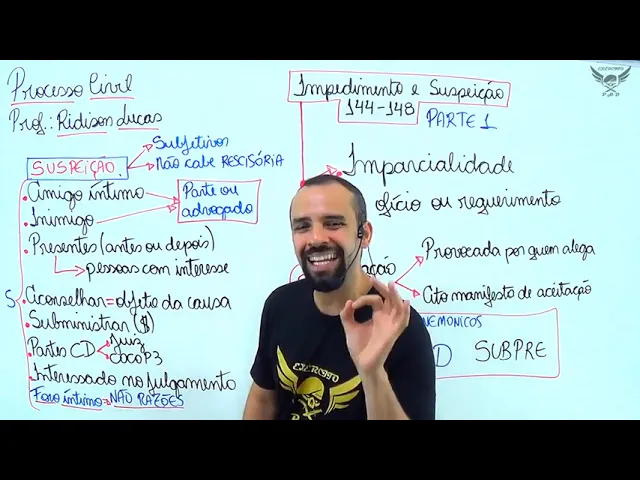 Processo Civil
Prof.: Ridison Lucas
SUSPEIÇÃO.
Subjetivos
Não cabe RESCISÓRIA
Amigo íntimo
Inimigo
Parte ou
advogado
Presentes (antes ou depois)
pessoas com interesse
Aconselhar = objeto da causa
Subministrar ($)
Partes CD
Juiz
COCOP3
Interessado no julgamento
Foro íntimo = NÃO RAZÕES
5
Impedimento e Suspeição
144-148
PARTE 1
Imparcialidade
ofício ou requerimento
Provocada por quem alega
Ato manifesto de aceitação
SUBPRE
EXÉRCITO